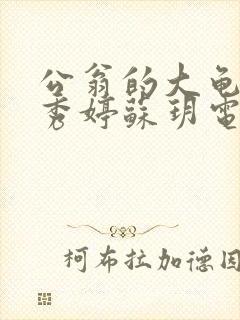 公翁的大龟
秀婷蘇玥電
柯布拉加德因